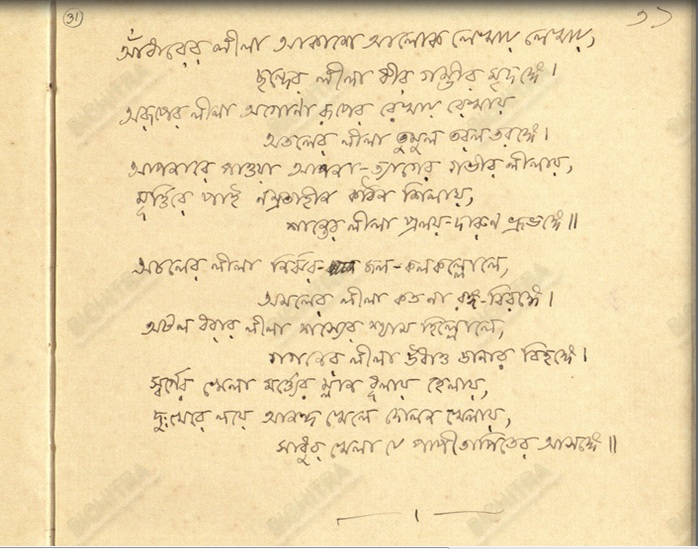 31
৩১
আঁধারের লীলা আকাশে আলোক লেখায় লেখায়,
ছন্দের লীলা ধীর গম্ভীর মৃদঙ্গে।
অরূপের লীলা অগোনা রূপের রেখায় রেখায়
অতলের লীলা তুমুল তরল তরঙ্গে।
আপনারে পাওয়া আপনা-ত্যাগের গভীর লীলায়,
মূর্ত্তিরে পাই নম্রতাহীন কঠিন শিলায়,
শান্তের লীলা প্রলয়-দারুণ ভ্রূভঙ্গে॥
অচলের লীলা নির্ঝর-জল-কলকল্লোলে,
অমলের লীলা কত না রঙ্গ-বিরঙ্গে।
অটল ধরার লীলা শস্যের শ্যাম হিল্লোলে,
গগনের লীলা উধাও ডানার বিহঙ্গে।
স্বর্গের খেলা মর্ত্ত্যের ম্লান ধূলায় হেলায়,
দুঃখেরে লয়ে আনন্দ খেলে দোলন খেলায়,
সাধুর খেলা যে পাপীতাপিতের আসঙ্গে॥
BICHITRA